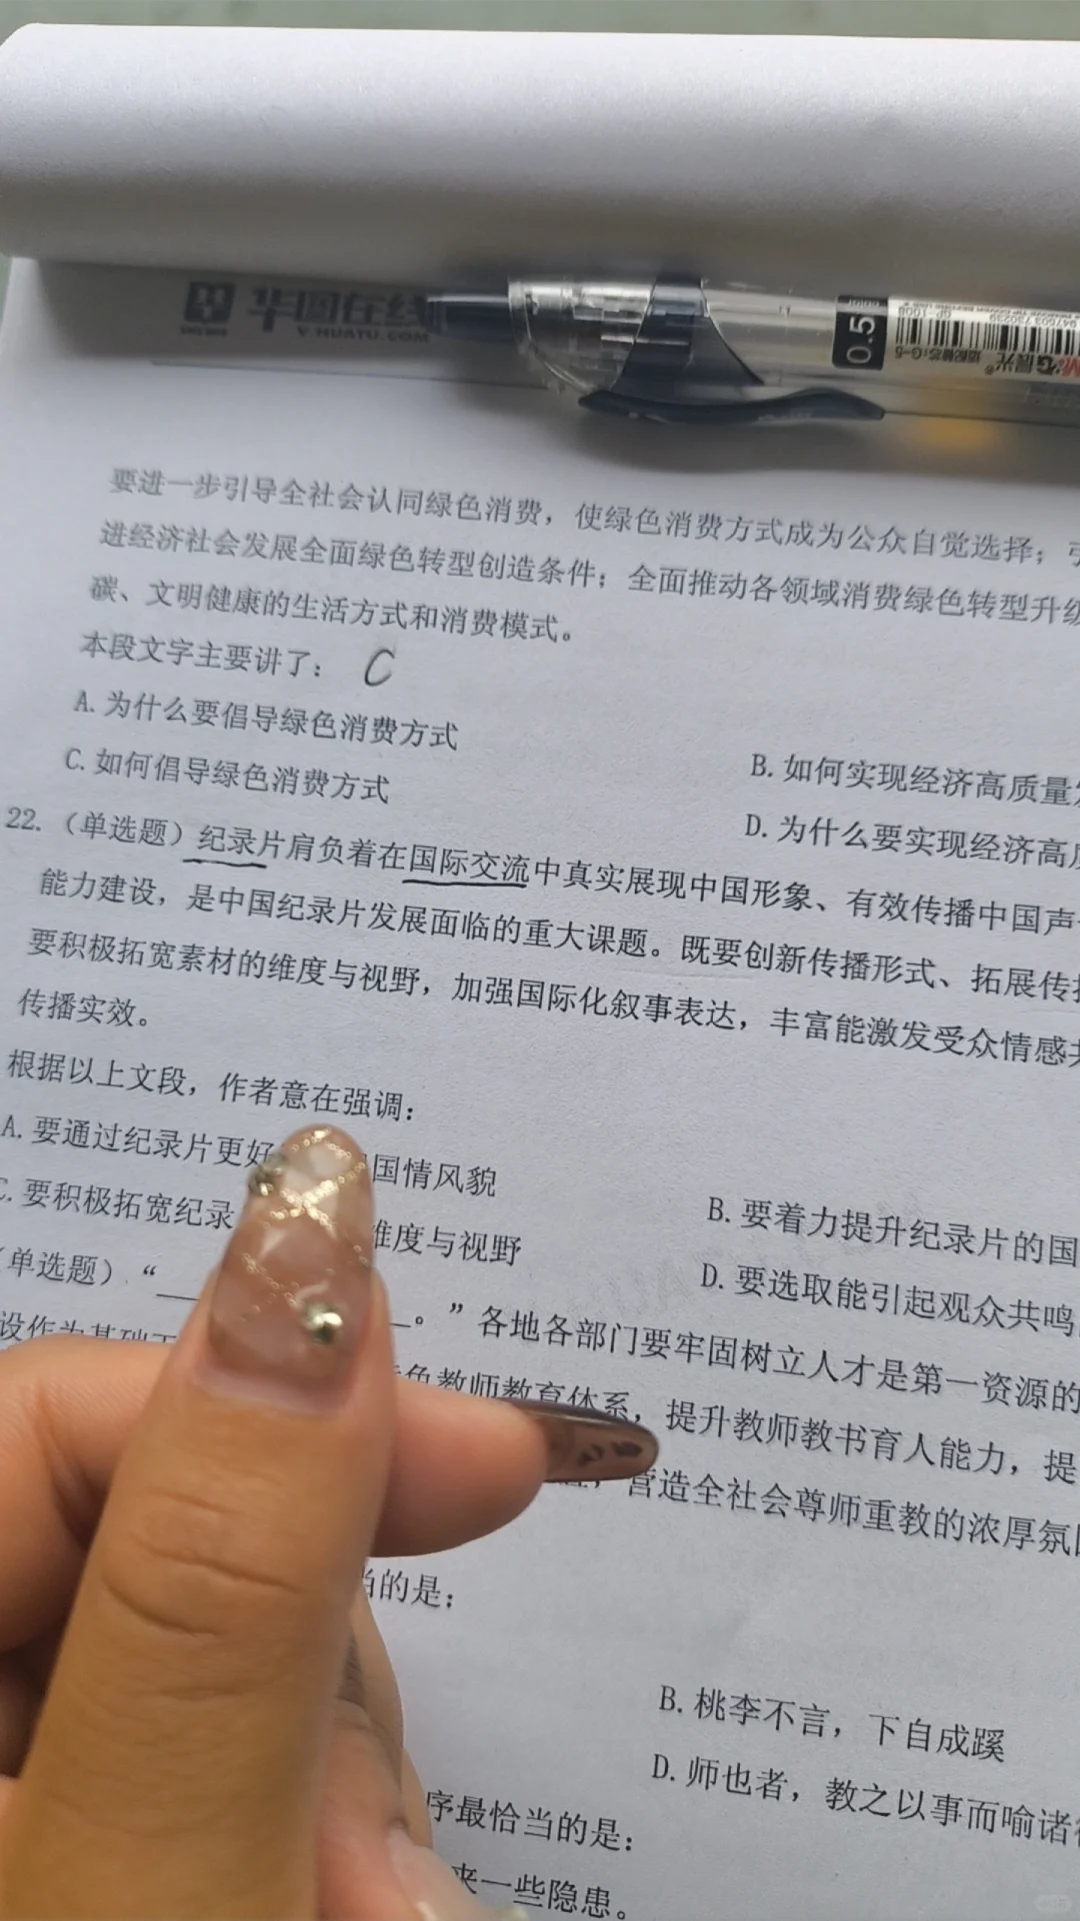 华图在线
V.HUATU.COM
0.5
晨光
要进一步引导全社会认同绿色消费，使绿色消费方式成为公众自觉选择；
进经济社会发展全面绿色转型创造条件；全面推动各领域消费绿色转型升级
碳、文明健康的生活方式和消费模式。
本段文字主要讲了： C
A.为什么要倡导绿色消费方式
B.如何实现经济高质量
C.如何倡导绿色消费方式
D.为什么要实现经济高
22.（单选题）纪录片肩负着在国际交流中真实展现中国形象、有效传播中国声
能力建设，是中国纪录片发展面临的重大课题。既要创新传播形式、拓展传
要积极拓宽素材的维度与视野，加强国际化叙事表达，丰富能激发受众情感
传播实效。
根据以上文段，作者意在强调：
A.要通过纪录片更好 国情风貌
B.要着力提升纪录片的国
C.要积极拓宽纪录 维度与视野
D.要选取能引起观众共鸣
（单选题）“ 。”各地各部门要牢固树立人才是第一资源的
设作为基础 教师教育体系，提升教师教书育人能力，提
营造全社会尊师重教的浓厚氛
当的是：
B.桃李不言，下自成蹊
D.师也者，教之以事而喻诸
序最恰当的是：
来一些隐患。